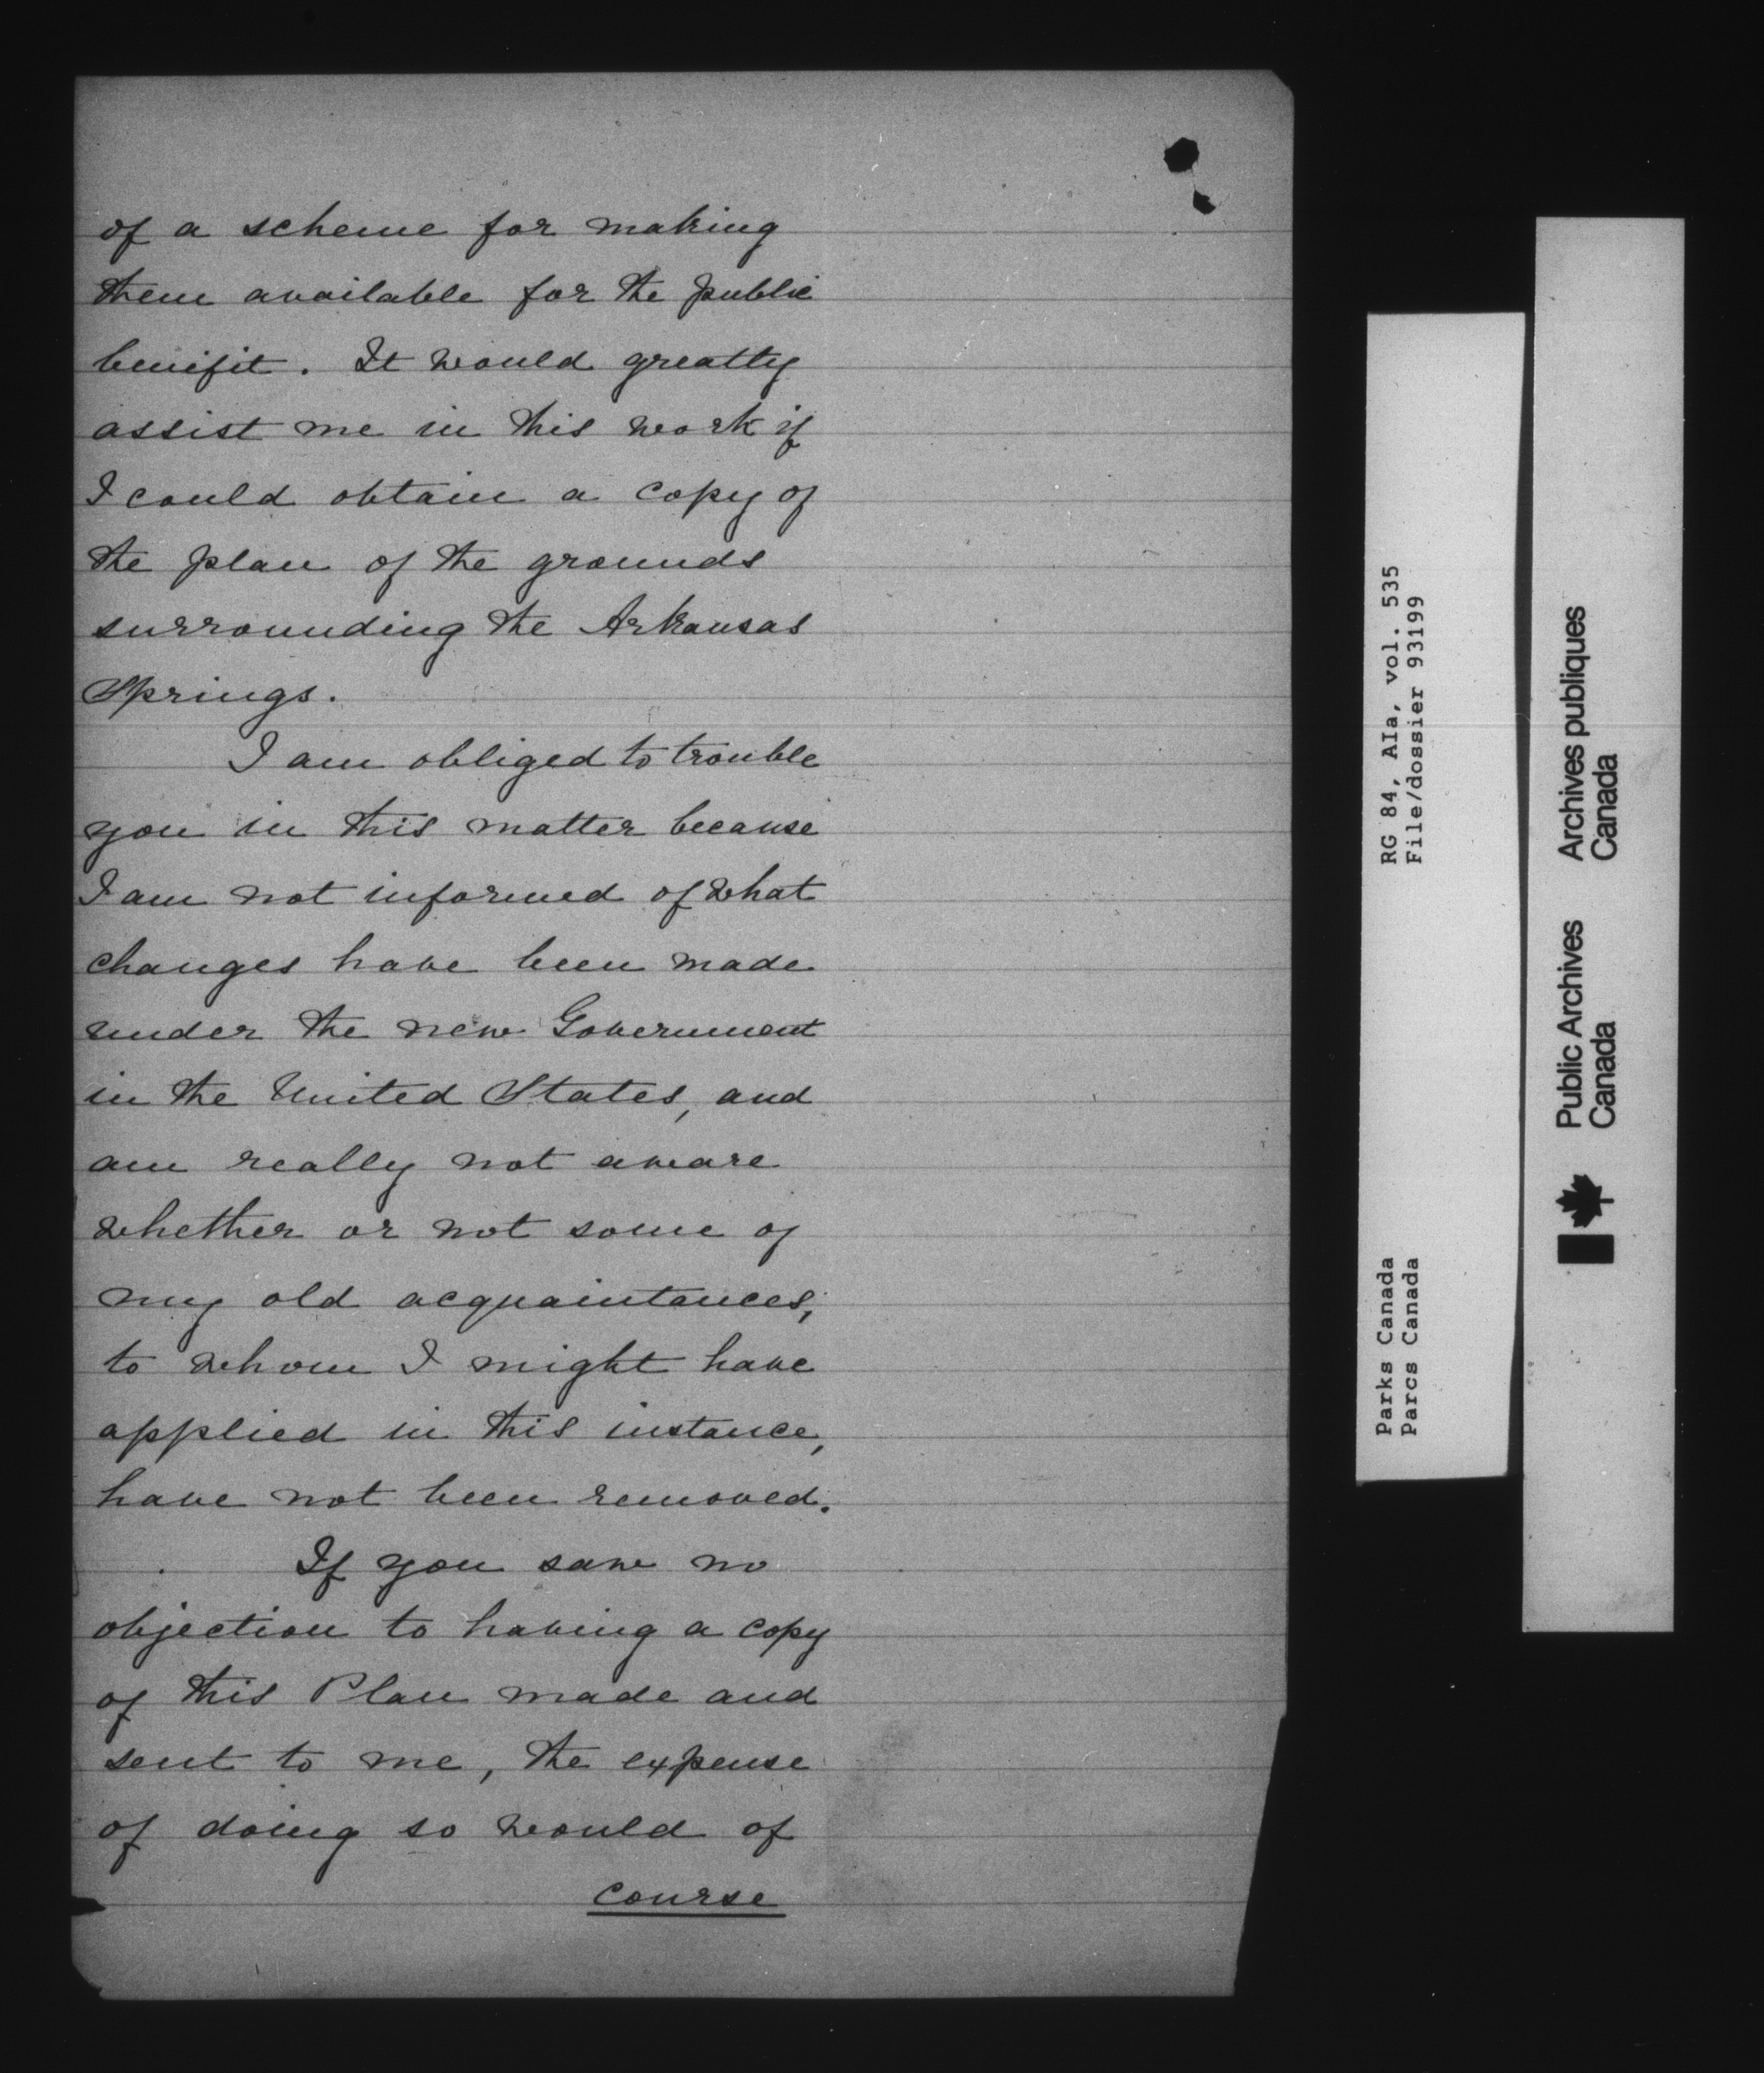 of a scheme for making
them available for the public
benifit. It would greatly
assist me in this work if
I could obtain a copy of
the plan of the grounds
surrounding the Arkansas
Springs.
I am obliged to trouble
you in this matter because
I am not informed of what
changes have been made
under the new Government
in the United States, and
am really not aware
whether or not some of
my old acquaintances,
to whom I might have
applied in this instance,
have not been removed.
If you saw no
objection to having a copy
of this Plan made and
sent to me, the expense
of doing so would of
course
RG 84, AIa, vol. 535
File/dossier 93199
Parks Canada
Parcs Canada
Public Archives
Canada
Archives publiques
Canada